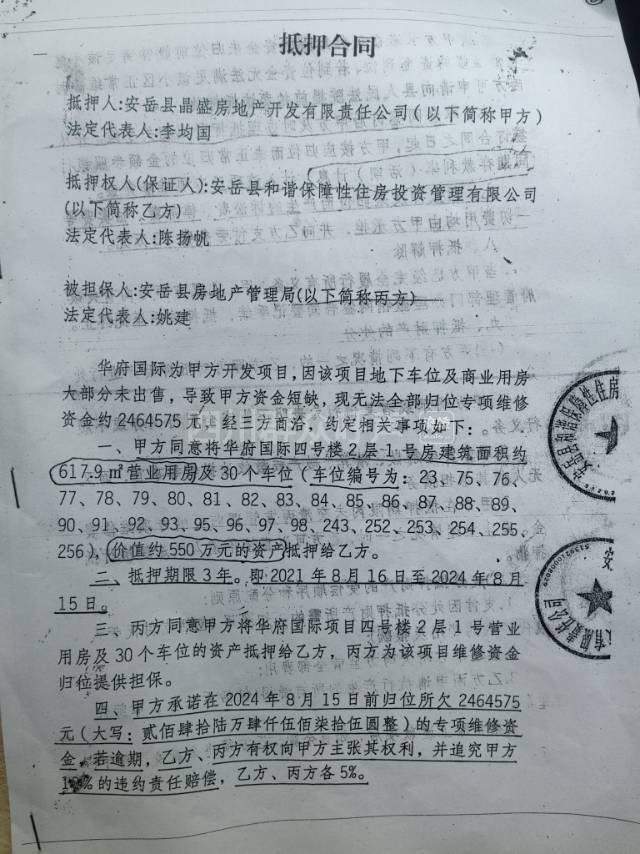 抵押合同
抵押人:安岳县晶盛房地产开发有限责任公司(以下简称甲方)
法定代表人:李均国
抵押权人(保证人):安岳县和谐保障性住房投资管理有限公司
(以下简称乙方)
法定代表人:陈扬帆
被担保人:安岳县房地产管理局(以下简称丙方)
法定代表人:姚建
华府国际为甲方开发项目,因该项目地下车位及商业用房
大部分未出售,导致甲方资金短缺,现无法全部归位专项维修
资金约2464575元。经三方商洽,约定相关事项如下:
一、甲方同意将华府国际四号楼2层1号房建筑面积约
617.9㎡营业用房及30个车位(车位编号为:23、75、76、
77、78、79、80、81、82、83、84、85、86、87、88、89、
90、91、92、93、95、96、97、98、243、252、253、254、255、
256),价值约550万元的资产抵押给乙方。
二、抵押期限3年。即2021年8月16日至2024年8月
15日。
三、丙方同意甲方将华府国际项目四号楼2层1号营业
用房及30个车位的资产抵押给乙方,丙方为该项目维修资金
归位提供担保。
四、甲方承诺在2024年8月15日前归位所欠2464575
元(大写:贰佰肆拾陆万肆仟伍佰柒拾伍圆整)的专项维修资
金,若逾期,乙方、丙方有权向甲方主张其权利,并追究甲方
10%的违约责任赔偿,乙方、丙方各5%。
安岳县和谐保障性住房